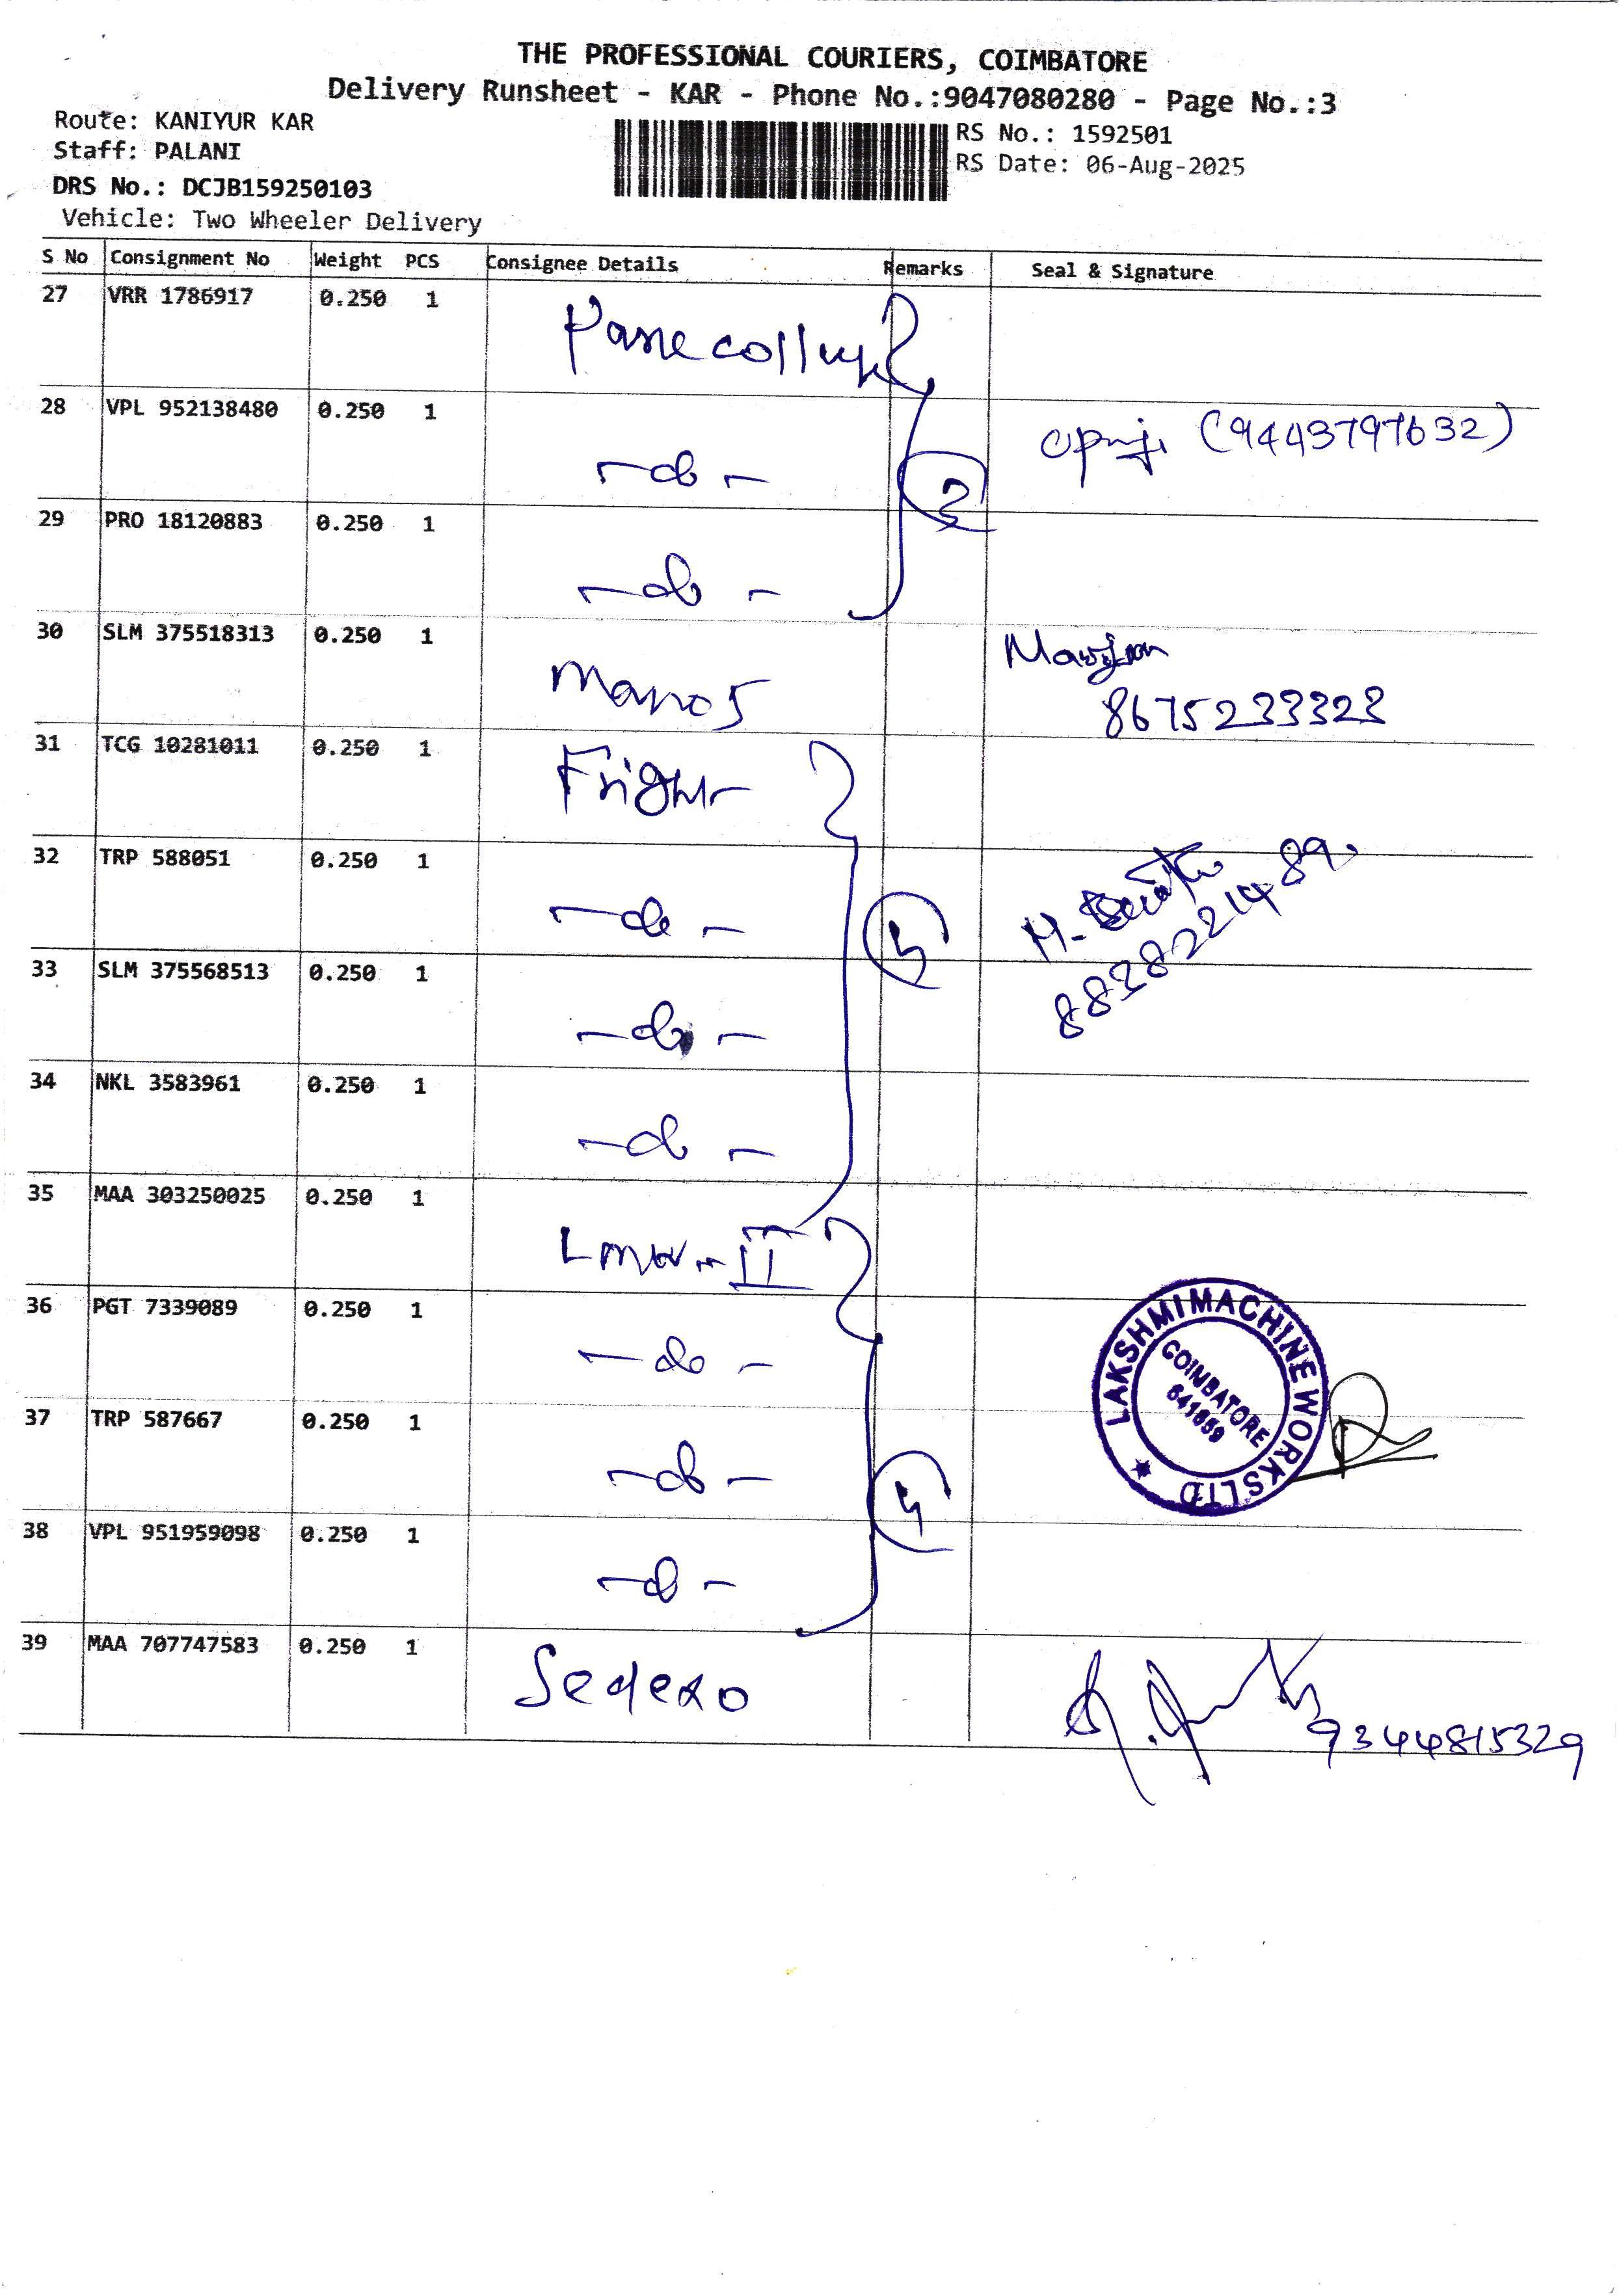 THE PROFESSIONAL COURIERS, COIMBATORE
Delivery Runsheet - KAR - Phone No.:9047080280 - Page No.:3
Route: KANIYUR KAR
RS No.: 1592501
Staff: PALANI
RS Date: 06-Aug-2025
DRS No.: DCJB159250103
Vehicle: Two Wheeler Delivery
S No Consignment No Weight PCS Consignee Details Remarks Seal & Signature
27 VRR 1786917 0.250 1
28 VPL 952138480 0.250 1 -do- (9443797632)
29 PRO 18120883 0.250 1 -do-
30 SLM 375518313 0.250 1
8675233323
31 TCG 10281011 0.250 1
32 TRP 588051 0.250 1 -do-
8838221489
33 SLM 375568513 0.250 1 -do-
34 NKL 3583961 0.250 1 -do-
35 MAA 303250025 0.250 1 Lmw-II
36 PGT 7339089 0.250 1 -do-
LAKSHMI MACHINE WORKS LTD
COIMBATORE
641659
37 TRP 587667 0.250 1 -do- 4
38 VPL 951959098 0.250 1 -do-
39 MAA 707747583 0.250 1
9344815329